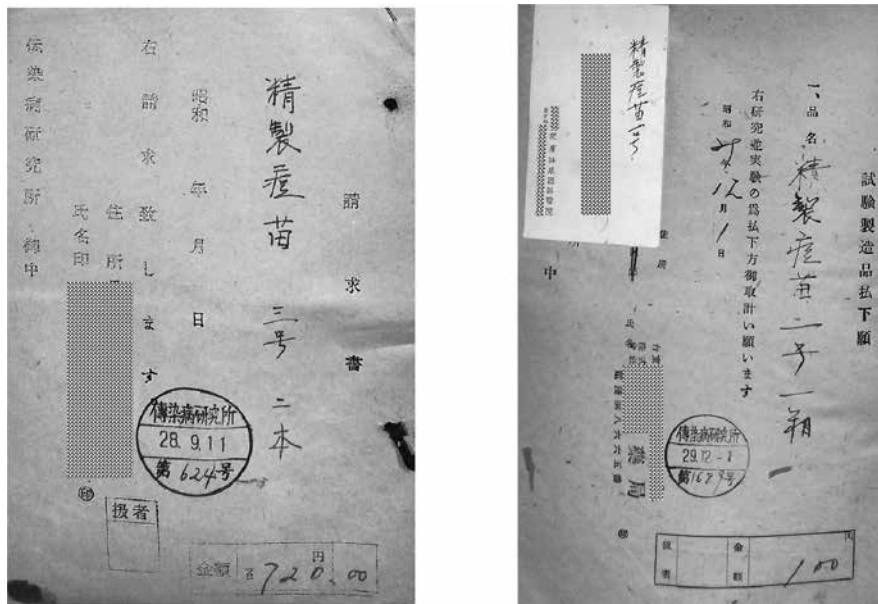 請求書
精製痘苗 三号 二本
昭和 年 月 日
右請求致します
住所
氏名印
伝染病研究所 御中
傳染病研究所
28.9.11
第624号
㊞
扱者
金額
円
720.00
試験製造品払下願
一、品名 精製痘苗二号一箱
右研究並実験の為払下方御取計い願います
昭和 年12月1日
精製痘苗二号
中
薬局
傳染病研究所
29.12-1
第1689号
扱者
金額
100